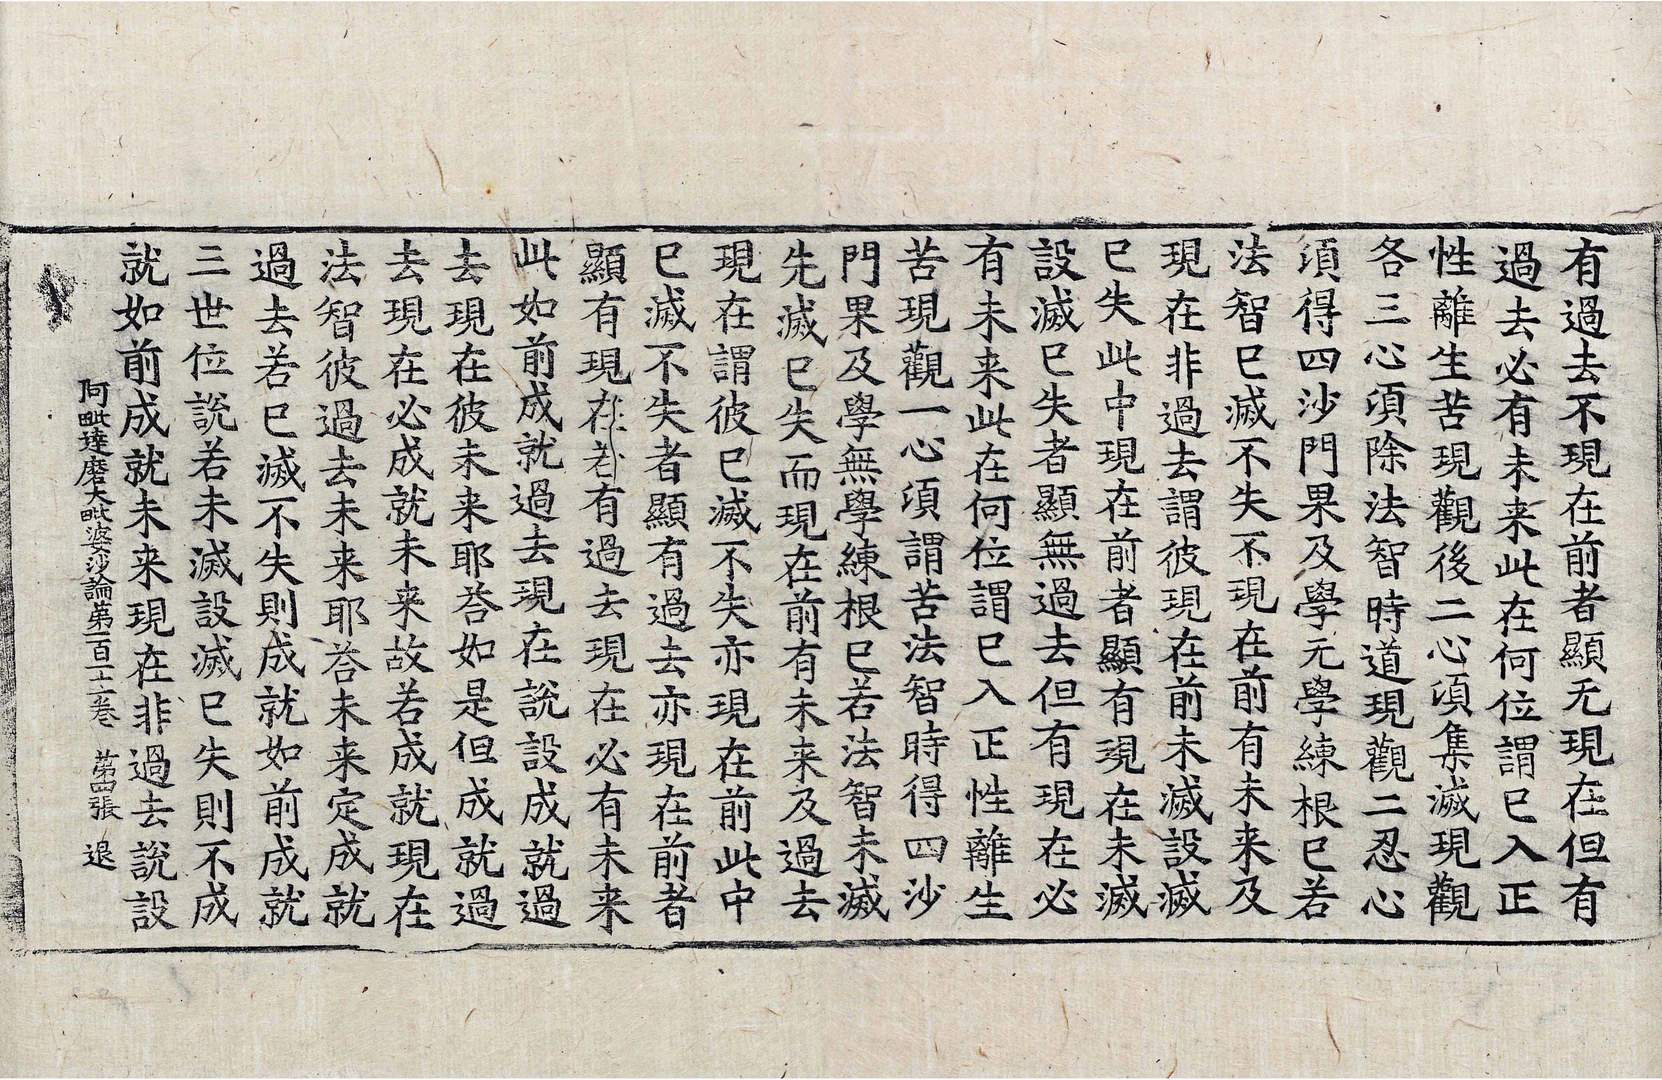 有過去不現在前者顯无現在但有
過去必有未来此在何位謂已入正
性離生苦現觀後二心湏集滅現觀
各三心湏除法智時道現觀二忍心
湏得四沙門果及學元學練根已若
法智已滅不失不現在前有未来及
現在非過去謂彼現在前未滅設滅
已失此中現在前者顯有現在未滅
設滅已失者顯無過去但有現在必
有未来此在何位謂已入正性離生
苦現觀一心湏謂苦法智時得四沙
門果及學無學練根已若法智未滅
先滅已失而現在前有未来及過去
現在謂彼已滅不失亦現在前此中
已滅不失者顯有過去亦現在前者
顯有現在若有過去現在必有未来
此如前成就過去現在說設成就過
去現在彼未来耶荅如是但成就過
去現在必成就未来故若成就現在
法智彼過去未来耶荅未来定成就
過去若已滅不失則成就如前成就
三世位說若未滅設滅已失則不成
就如前成就未来現在非過去說設
阿毗達磨大毗婆沙論第一百六十二卷 第四張 退